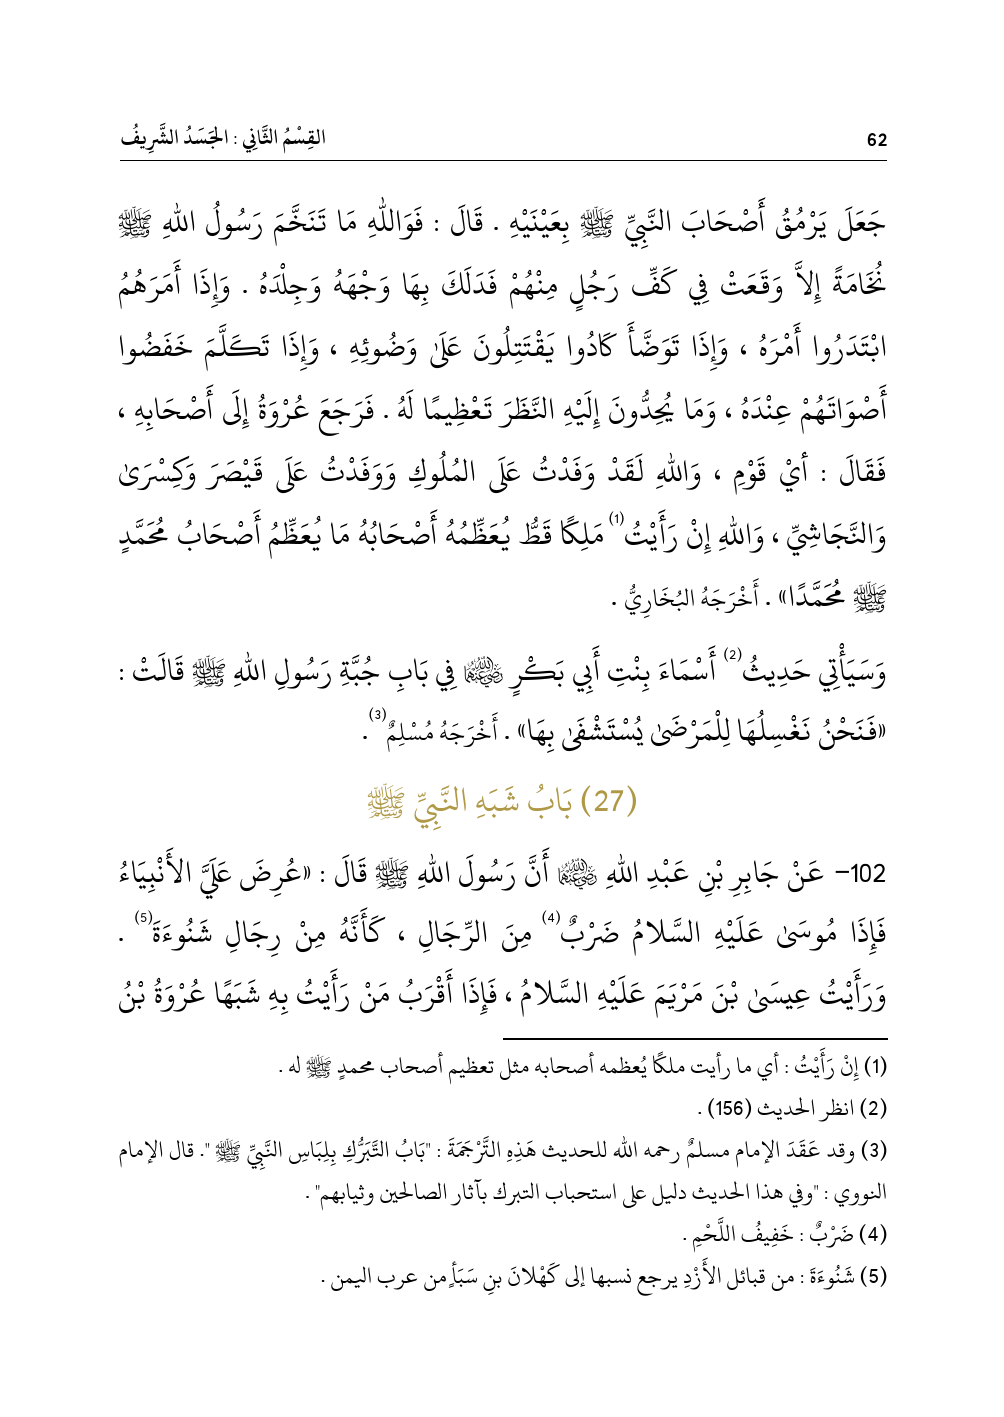 62 القِسْمُ الثَّانِي : الجَسَدُ الشَّرِيفُ
جَعَلَ يَرْمُقُ أَصْحَابَ النَّبِيِّ ﷺ بِعَيْنَيْهِ . قَالَ : فَوَاللهِ مَا تَنَخَّمَ رَسُولُ اللهِ ﷺ
نُخَامَةً إِلاَّ وَقَعَتْ فِي كَفِّ رَجُلٍ مِنْهُمْ فَدَلَكَ بِهَا وَجْهَهُ وَجِلْدَهُ . وَإِذَا أَمَرَهُمُ
ابْتَدَرُوا أَمْرَهُ ، وَإِذَا تَوَضَّأَ كَادُوا يَقْتَتِلُونَ عَلَىٰ وَضُوئِهِ ، وَإِذَا تَكَلَّمَ خَفَضُوا
أَصْوَاتَهُمْ عِنْدَهُ ، وَمَا يُحِدُّونَ إِلَيْهِ النَّظَرَ تَعْظِيمًا لَهُ . فَرَجَعَ عُرْوَةُ إِلَى أَصْحَابِهِ ،
فَقَالَ : أَيْ قَوْمِ ، وَاللهِ لَقَدْ وَفَدْتُ عَلَى المُلُوكِ وَوَفَدْتُ عَلَى قَيْصَرَ وَكِسْرَىٰ
وَالنَّجَاشِيِّ ، وَاللهِ إِنْ رَأَيْتُ(1) مَلِكًا قَطُّ يُعَظِّمُهُ أَصْحَابُهُ مَا يُعَظِّمُ أَصْحَابُ مُحَمَّدٍ
ﷺ مُحَمَّدًا» . أَخْرَجَهُ البُخَارِيُّ .
وَسَيَأْتِي حَدِيثُ(2) أَسْمَاءَ بِنْتِ أَبِي بَكْرٍ رضي الله عنهما فِي بَابِ جُبَّةِ رَسُولِ اللهِ ﷺ قَالَتْ :
«فَنَحْنُ نَغْسِلُهَا لِلْمَرْضَىٰ يُسْتَشْفَىٰ بِهَا» . أَخْرَجَهُ مُسْلِمٌ(3) .
(27) بَابُ شَبَهِ النَّبِيِّ ﷺ
102– عَنْ جَابِرِ بْنِ عَبْدِ اللهِ رضي الله عنهما أَنَّ رَسُولَ اللهِ ﷺ قَالَ : «عُرِضَ عَلَيَّ الأَنْبِيَاءُ
فَإِذَا مُوسَىٰ عَلَيْهِ السَّلامُ ضَرْبٌ(4) مِنَ الرِّجَالِ ، كَأَنَّهُ مِنْ رِجَالِ شَنُوءَةَ(5) .
وَرَأَيْتُ عِيسَىٰ بْنَ مَرْيَمَ عَلَيْهِ السَّلامُ ، فَإِذَا أَقْرَبُ مَنْ رَأَيْتُ بِهِ شَبَهًا عُرْوَةُ بْنُ
(1) إِنْ رَأَيْتُ : أي ما رأيت ملكًا يُعظمه أصحابه مثل تعظيم أصحاب محمدٍ ﷺ له .
(2) انظر الحديث (156) .
(3) وقد عَقَدَ الإمام مسلمٌ رحمه الله للحديث هَذِهِ التَّرْجَمَةَ : "بَابُ التَّبَرُّكِ بِلِبَاسِ النَّبِيِّ ﷺ ". قال الإمام
النووي : "وفي هذا الحديث دليل على استحباب التبرك بآثار الصالحين وثيابهم" .
(4) ضَرْبٌ : خَفِيفُ اللَّحْمِ .
(5) شَنُوءَةَ : من قبائل الأَزْدِ يرجع نسبها إلى كَهْلانَ بنِ سَبَأٍ من عرب اليمن .